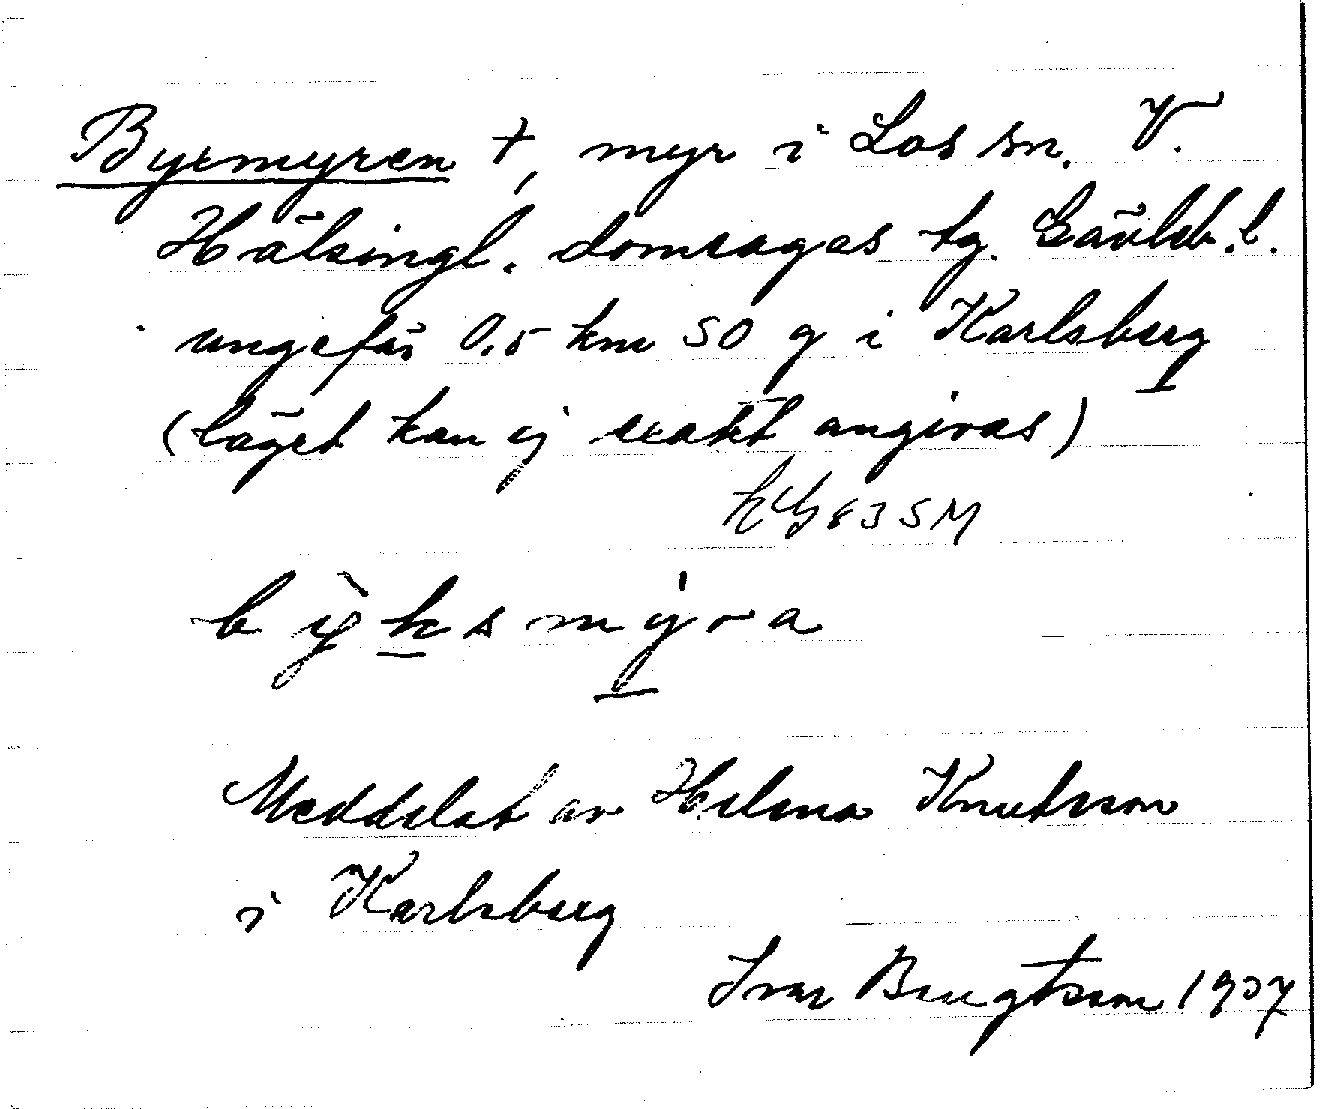 Byxmyren †, myr i Los sn. V.
Hälsingl. domsagas tg. Gävleb. l.
ungefär 0.5 km SO g i Karlsberg
(läget kan ej exakt angivas)
63 SM
Meddelat av Helena Knutsson
i Karlsberg
Ivar Bengtsson 1937